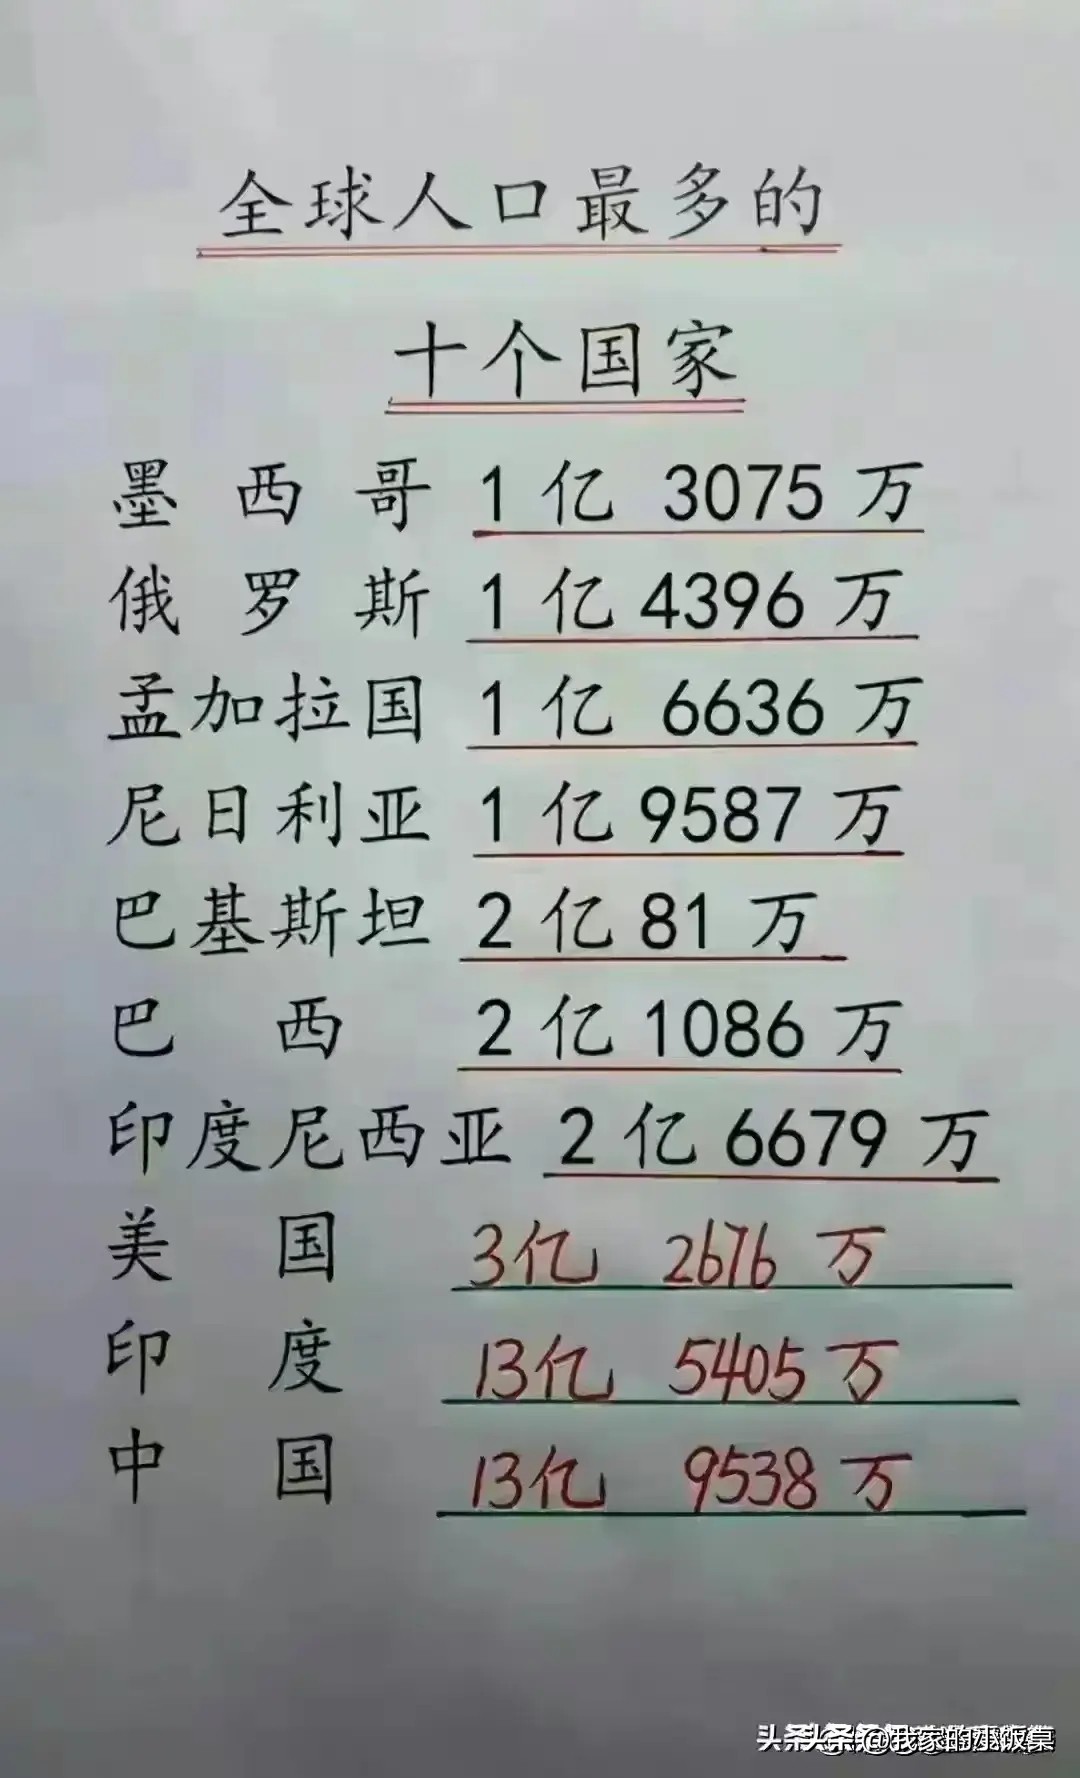 全球人口最多的
十个国家
墨西哥 1亿 3075万
俄罗斯 1亿4396万
孟加拉国 1亿 6636万
尼日利亚 1亿9587万
巴基斯坦 2亿81万
巴西 2亿1086万
印度尼西亚 2亿6679万
美国 3亿 2676万
印度 13亿 5405万
中国 13亿 9538万
头条 @我家的小饭桌